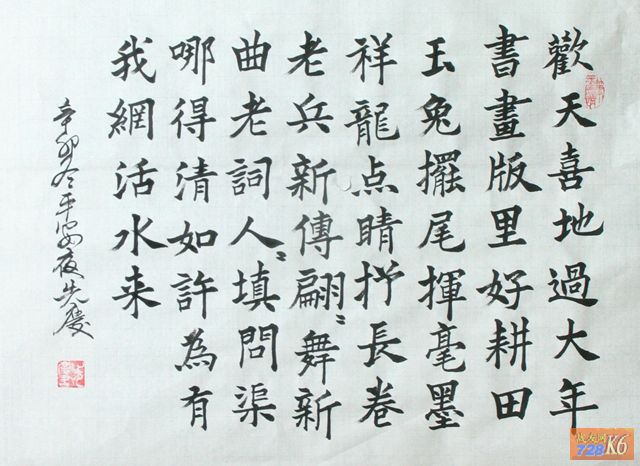 歡天喜地過大年
書畫版里好耕田
玉兔擺尾揮毫墨
祥龍点睛抒長卷
老兵新傳翩〻舞新
曲老詞人〻填問渠
哪得清如許為有
我網活水来
辛卯冬平安夜
战友网
728 K6